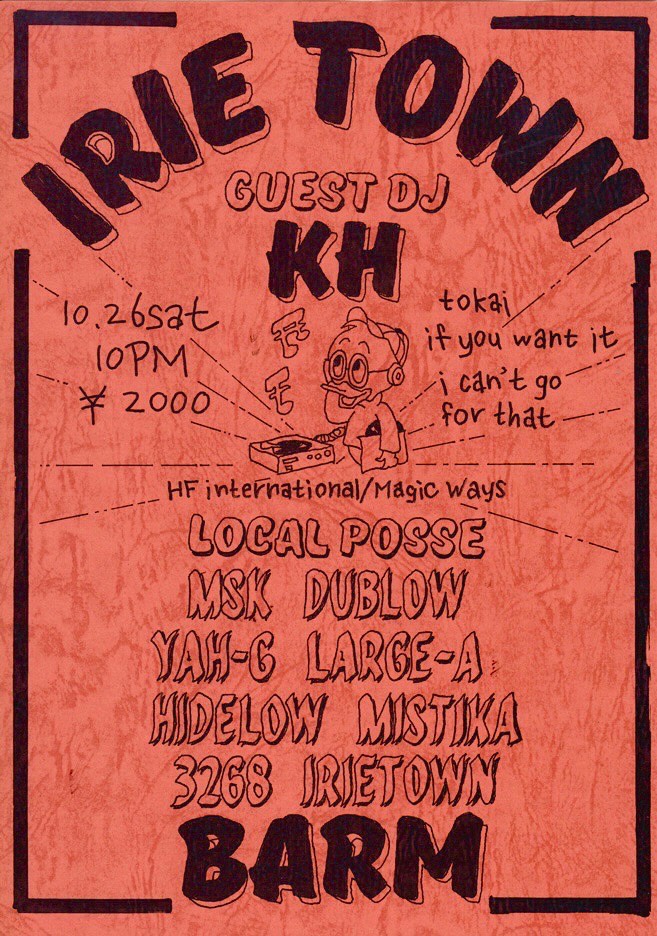 IRIE TOWN
GUEST DJ
KH
10.26sat
10PM
¥ 2000
tokai
if you want it
i can't go
for that
HF international/Magic Ways
LOCAL POSSE
MSK DUBLOW
YAH-G LARGE-A
HIDELOW MISTIKA
3268 IRIETOWN
BARM